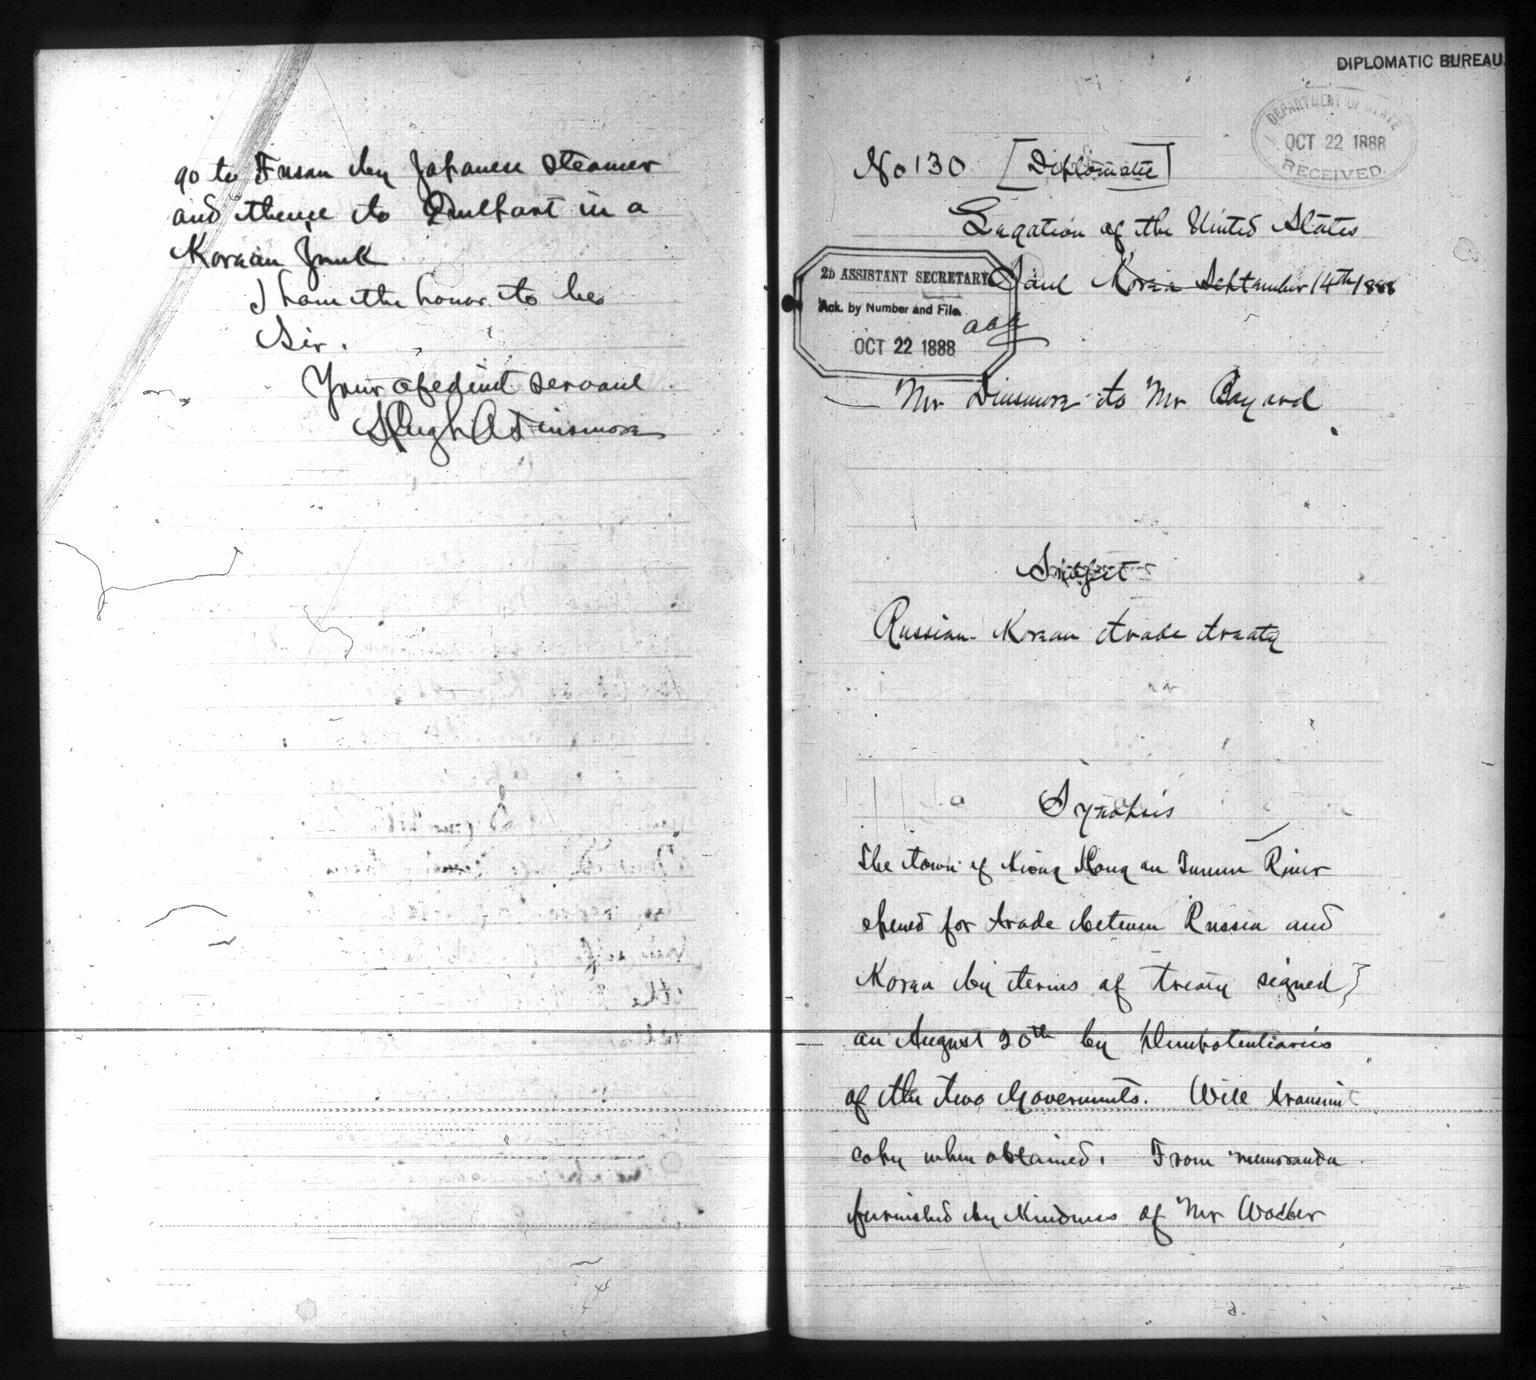 go to Fusan by Japanese Steamer
and thence to Quelpart in a
Korean Junk
I have the honor to be
Sir.
Your obedient servant
Hugh A Dinsmore
DIPLOMATIC BUREAU.
DEPARTMENT OF STATE
OCT 22 1888
RECEIVED.
No 130 [Diplomatic]
Legation of the United States
Seoul Korea September 14th 1888
2D ASSISTANT SECRETARY
Ack. by Number and File
OCT 22 1888
Mr Dinsmore to Mr Bayard
Subject
Russian-Korean trade treaty
Synopsis
The town of Kiong Hong on Tumen River
opened for trade between Russia and
Korea by terms of treaty signed
on August 20th by Plenipotentiaries
of the two Governments. Will transmit
copy when obtained. From memoranda
furnished by kindness of Mr Waeber